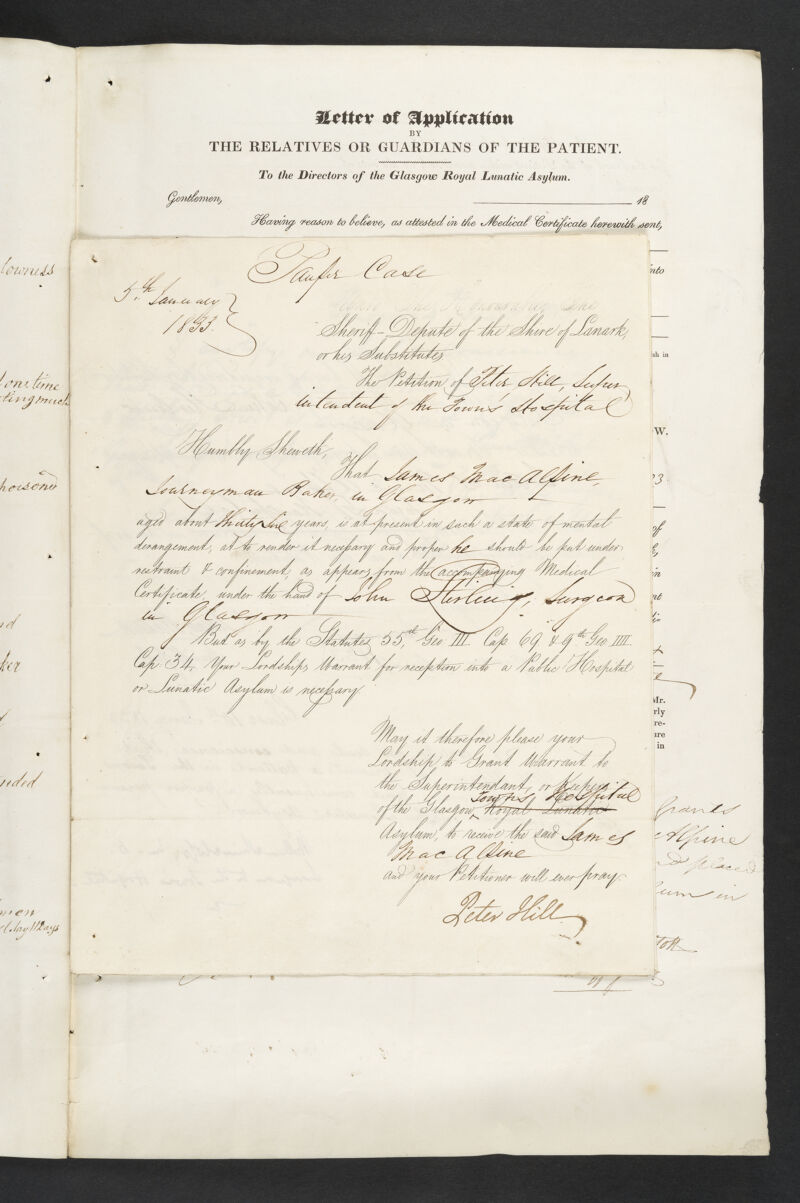 Letter of Application
BY
THE RELATIVES OR GUARDIANS OF THE PATIENT.
To the Directors of the Glasgow Royal Lunatic Asylum.
Gentlemen, 18
Having reason to believe, as attested in the Medical Certificate herewith sent,
Pauper Case
5th January
1833.
Honourable the
Sheriff-Depute of the Shire of Lanark,
or his Substitutes
The Petition of Peter Hill, Super
intendent of the Town's Hospital
Humbly Sheweth,
That James MacAlpine,
Journeyman Baker, in Glasgow
aged about thirty six years, is at present in such a state of mental
derangement, as to render it necessary and proper he should be put under
restraint & confinement, as appears from the accompanying Medical
Certificate, under the hand of John Stirling, Surgeon
in Glasgow
But as by the Statutes 55th Geo III. Cap. 69 & 9th Geo IIII.
Cap 34, Your Lordships Warrant for reception into a Public Hospital
or Lunatic Asylum is necessary.
May it therefore please your
Lordship, to Grant Warrant to
the Superintendant, or Keeper
of the Glasgow Towns Hospital Royal Lunatic
Asylum, to receive the said James
MacAlpine
and your Petitioner will ever pray.
Peter Hill
lowness
time
ting much
poisoned
ker
nded
men
into
sh in
W.
23
of
in
nt
Mr.
rly
re-
ure
in
Graves
Alpine
placed
in